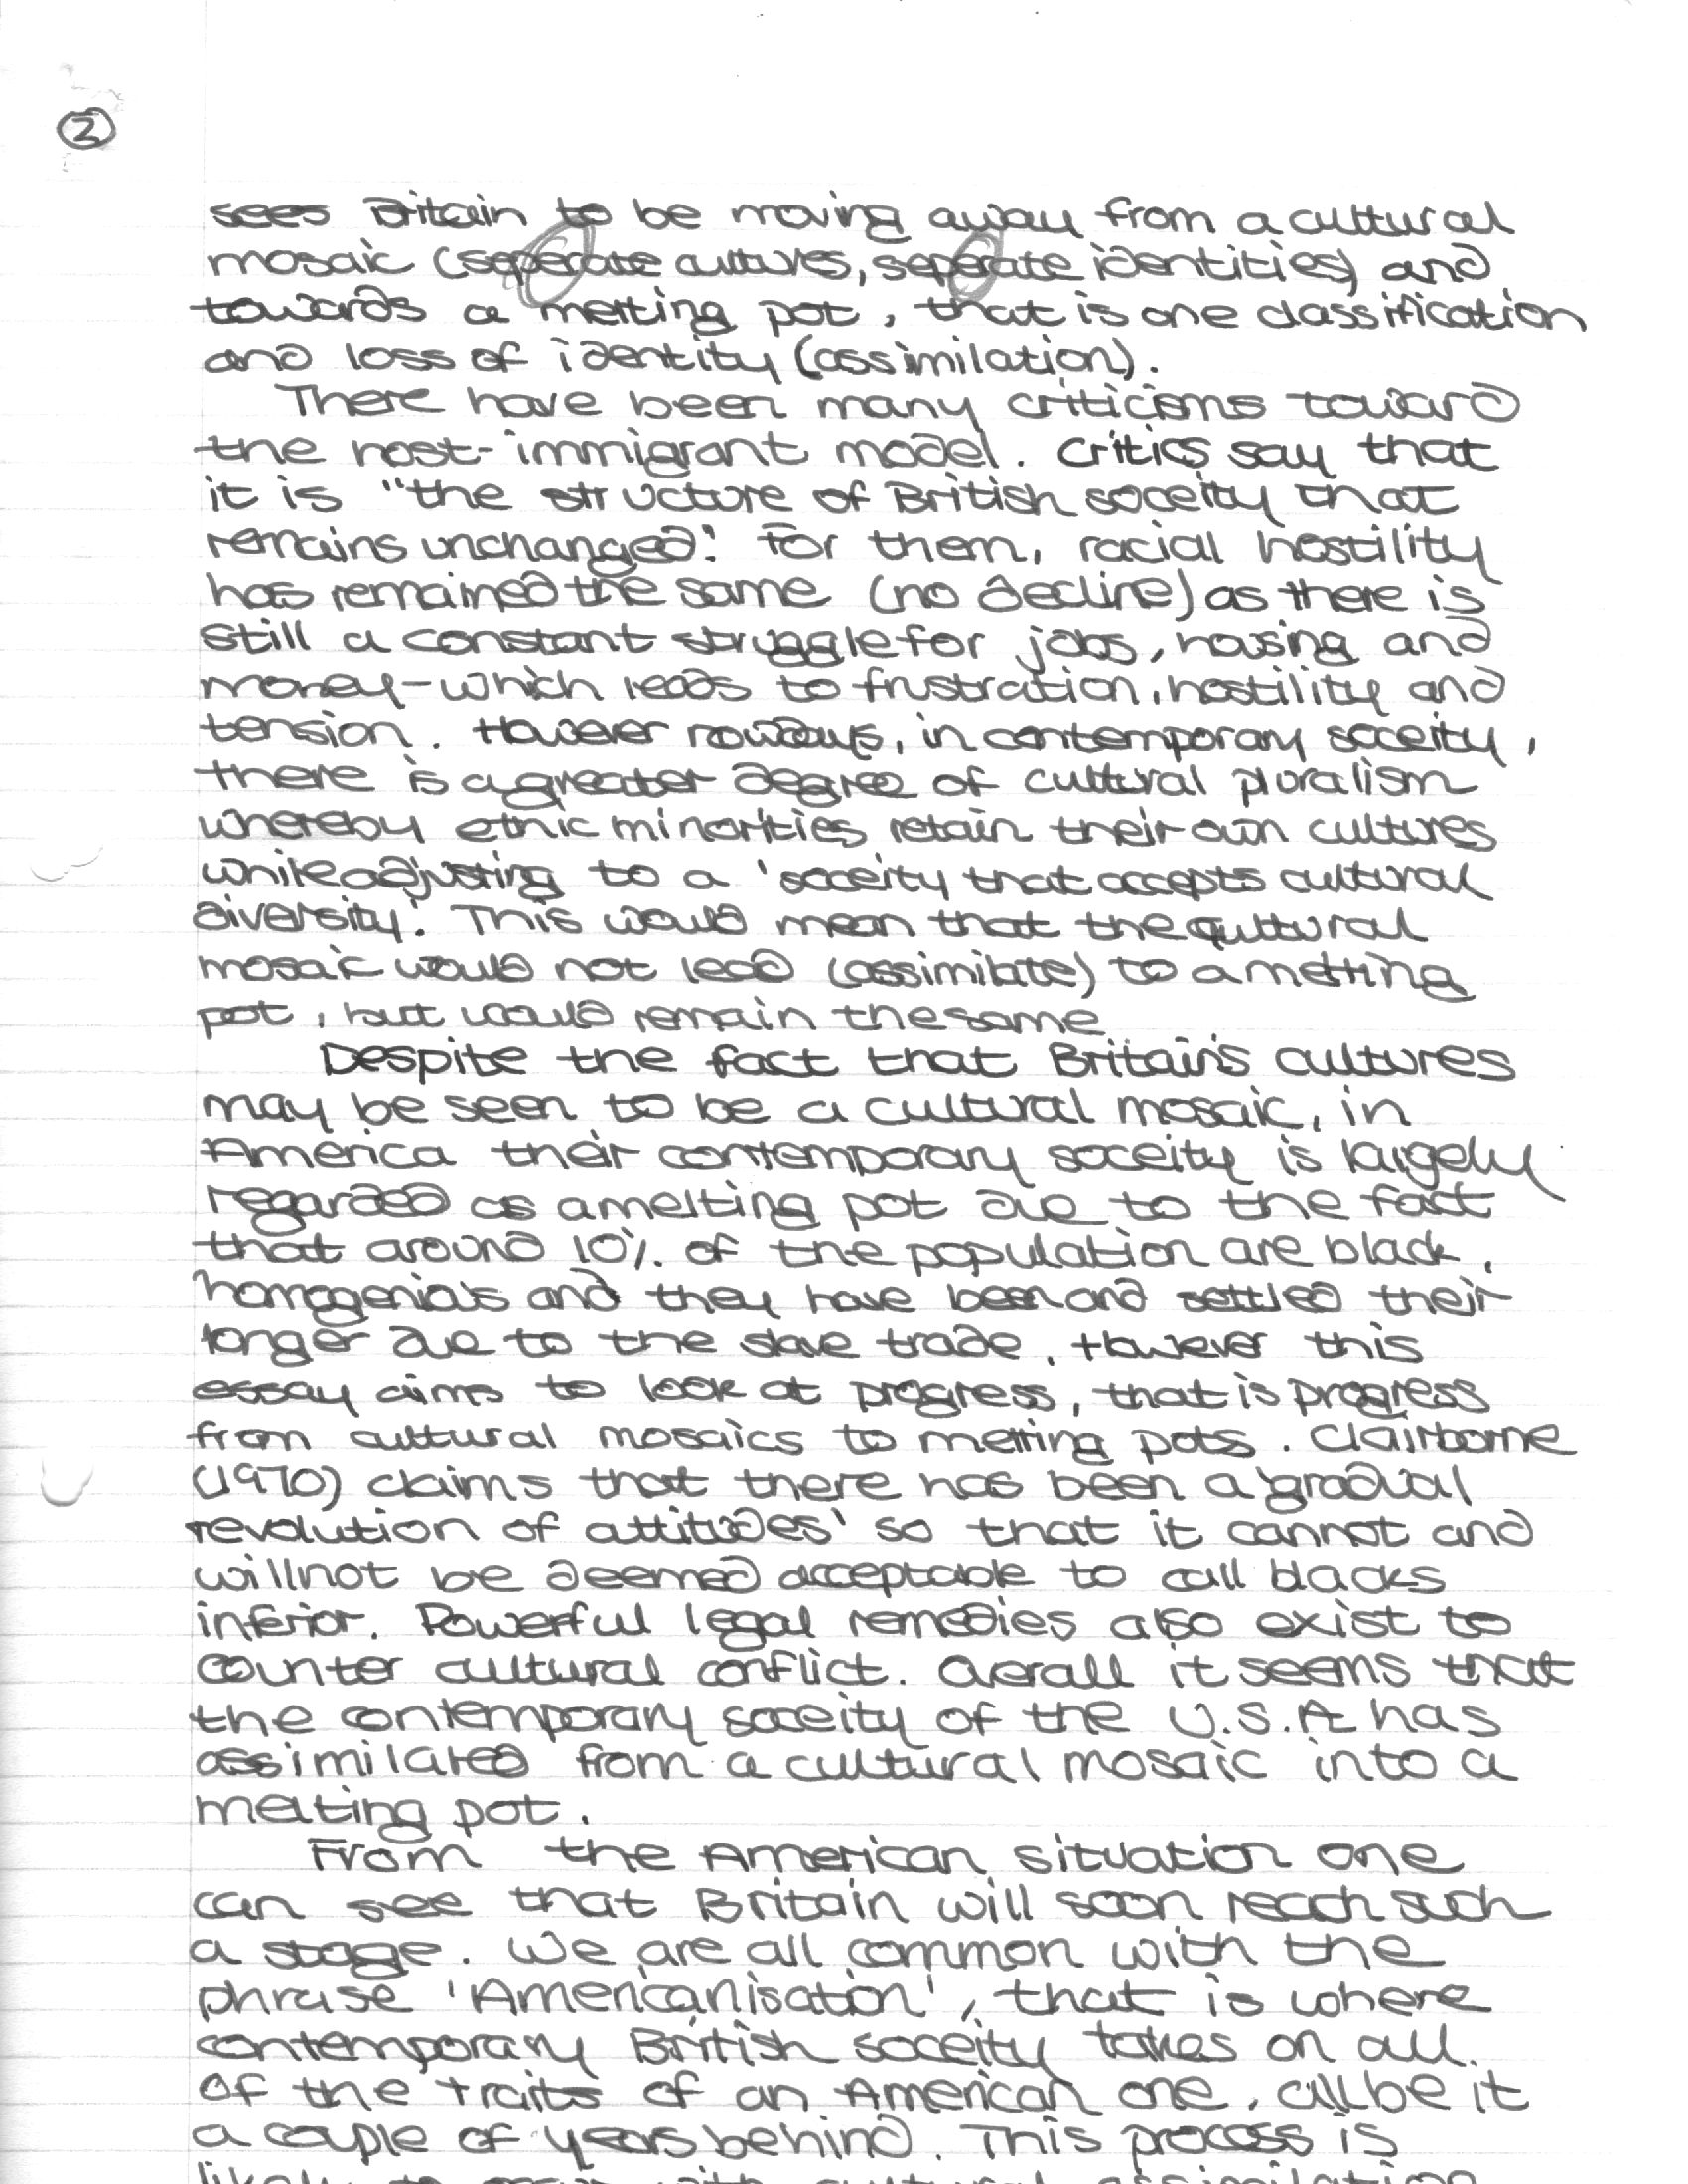 ②
sees Britain to be moving away from a cultural
mosaic (seperate cultures, seperate identities) and
towards a melting pot, that is one classification
and loss of identity (assimilation).
There have been many criticisms toward
the host-immigrant model. Critics say that
it is "the structure of British soceity that
remains unchanged". For them, racial hostility
has remained the same (no decline) as there is
still a constant struggle for jobs, housing and
money - which leads to frustration, hostility and
tension. However nowdays, in contemporary soceity,
there is a greater degree of cultural pluralism
whereby ethnic minorities retain their own cultures
while adjusting to a 'soceity that accepts cultural
diversity'. This would mean that the cultural
mosaic would not lead (assimilate) to a melting
pot, but would remain the same
Despite the fact that Britain's cultures
may be seen to be a cultural mosaic, in
America their contemporary soceity is largely
regarded as a melting pot due to the fact
that around 10% of the population are black,
homogenious and they have been and settled their
longer due to the slave trade. However this
essay aims to look at progress, that is progress
from cultural mosaics to melting pots. Clairborne
(1970) claims that there has been a 'gradual
revolution of attitudes' so that it cannot and
will not be deemed acceptable to call blacks
inferior. Powerful legal remedies also exist to
counter cultural conflict. Overall it seems that
the contemporary soceity of the U.S.A has
assimilated from a cultural mosaic into a
melting pot.
From the American situation one
can see that Britain will soon reach such
a stage. We are all common with the
phrase 'Americanisation', that is where
contemporary British soceity takes on all
of the traits of an American one, all be it
a couple of years behind. This process is
likely to with cultural assimilation